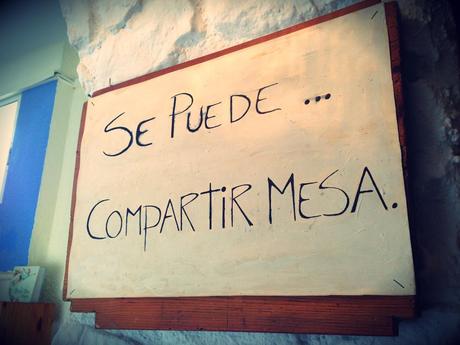 SE PUEDE ...
COMPARTIR MESA.